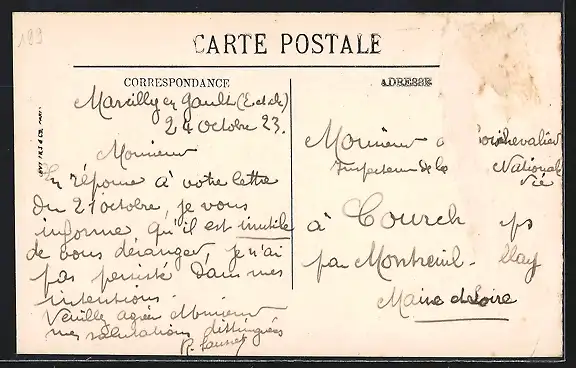 193
CARTE POSTALE
CORRESPONDANCE
ADRESSE
Marcilly en Gault (L et Ch)
24 octobre 23.
Monsieur
En réponse à votre lettre
du 21 octobre, je vous
informe qu'il est inutile
de vous déranger, je n'ai
pas persisté dans mes
intentions.
Veuillez agréer Monsieur
mes salutations distinguées
Monsieur
Inspecteur de la National
Vie
à Courch
par Montreuil. Bellay
Maine et Loire